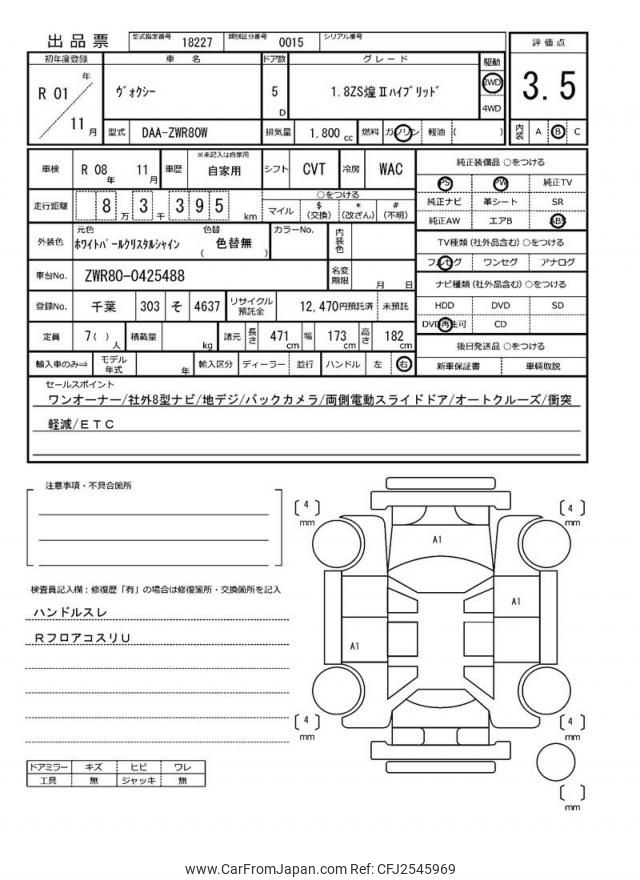 出品票 型式指定番号 18227 類別区分番号 0015 シリアル番号
評価点
3.5
内装 A B C
初年度登録 車名 ドア数 グレード 駆動
R 01 年 11 月
ヴォクシー 5 D 1.8ZS煌Ⅱハイブリッド 2WD 4WD
型式 DAA-ZWR80W 排気量 1.800 cc 燃料 ガソリン 軽油 ( )
車検 R 08 年 11 月 車歴 ※未記入は自家用 自家用 シフト CVT 冷房 WAC
走行距離 8 万 3 千 3 9 5 km
○をつける
マイル $ (交換) * (改ざん) # (不明)
外装色 元色 ホワイトパールクリスタルシャイン 色替 ( 色替無 ) カラーNo. 内装色
車台No. ZWR80-0425488 名変期限 月 日
登録No. 千葉 303 そ 4637 リサイクル預託金 12,470円預託済 未預託
定員 7( ) 人 積載量 kg 諸元 長さ 471 cm 幅 173 cm 高さ 182 cm
輸入車のみ⇒ モデル年式 年 輸入区分 ディーラー 並行 ハンドル 左 右
純正装備品 ○をつける
PS PW 純正TV
純正ナビ 革シート SR
純正AW エアB ABS
TV種類(社外品含む) ○をつける
フルセグ ワンセグ アナログ
ナビ種類(社外品含む) ○をつける
HDD DVD SD
DVD再生可 CD
後日発送品 ○をつける
新車保証書 車輌取説
セールスポイント
ワンオーナー/社外8型ナビ/地デジ/バックカメラ/両側電動スライドドア/オートクルーズ/衝突
軽減/ETC
注意事項・不具合箇所
検査員記入欄:修復歴「有」の場合は修復箇所・交換箇所を記入
ハンドルスレ
RフロアコスリU
ドアミラー キズ ヒビ ワレ
工具 無 ジャッキ 無
( 4 ) mm
( 4 ) mm
A1
A1
A1
( 4 ) mm
( 4 ) mm
( ) mm
www.CarFromJapan.com Ref: CFJ2545969